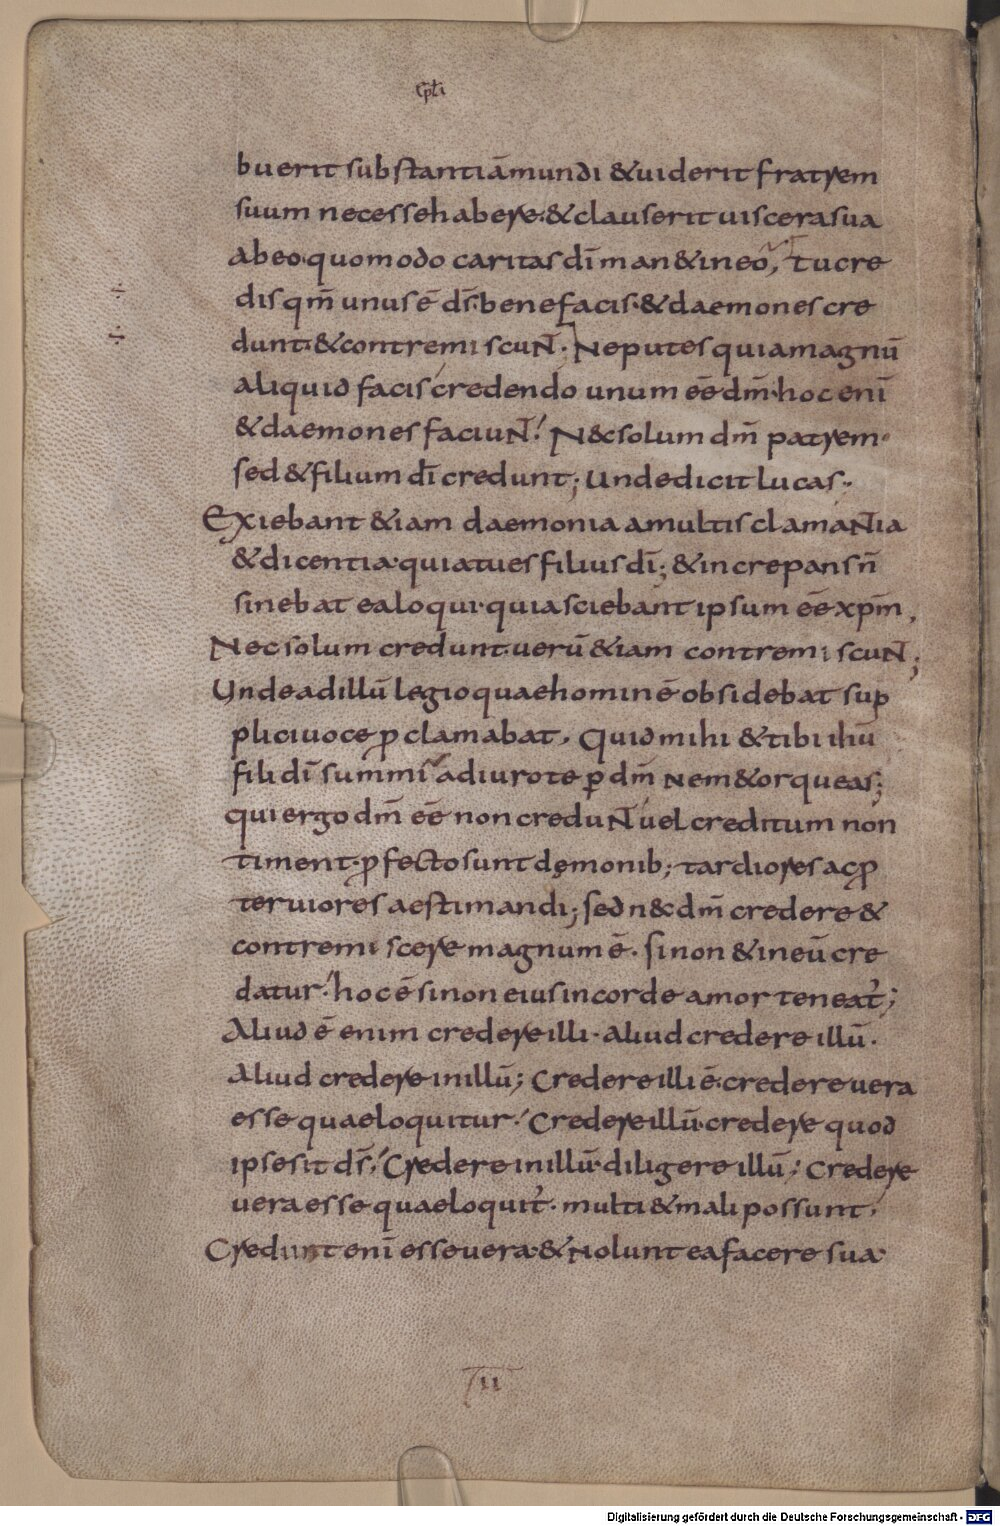 ep̄ti
buerit substantiā mundi & uiderit fratrem
suum necesse habere·& clauserit uiscera sua
ab eo·quomodo caritas dī man& in eo, Tu cre
dis qm̄ unus ē ds̄·bene facis·& daemones cre
dunt·& contremiscuNT̄· Ne putes quia magnū
aliquid facis credendo unum eē dm̄·hoc enī
& daemones faciuNT̄! N&c solum dm̄ patrem·
sed & filium dī credunt; Unde dicit lucas·
Exiebant &iam daemonia a multis clamaNTia
& dicentia·quia tu es filius dī; & increpans ñ
sinebat ea loqui·quia sciebant ipsum eē xpm̄,
Nec solum credunt·uerū &iam contremiscuNT;
Unde ad illū legio quae hominē obsidebat sup
plici uoce p̄clamabat· Quid mihi & tibi ihū
fili dī summi adiuro te p̱ dm̄ ne me torqueas;
qui ergo dm̄ eē non creduNT uel creditum non
timent·p̄fecto sunt dęmonib; tardiores ac p̄
teruiores aestimandi; sed n&c dm̄ credere &
contremiscere magnum ē· si non & in eū cre
datur! hoc ē si non eius in corde amor teneat᷑;
Aliud ē enim credere illi· aliud credere illū·
Aliud credere in illū; Credere illi ē·credere uera
esse quae loquitur! Credere illū·credere quod
ipse sit ds̄! Credere in illū·diligere illū! Credere
uera esse quae loquit᷑· multi & mali possunt,
Credunt enī esse uera·& nolunt ea facere sua
II
Digitalisierung gefördert durch die Deutsche Forschungsgemeinschaft - DFG